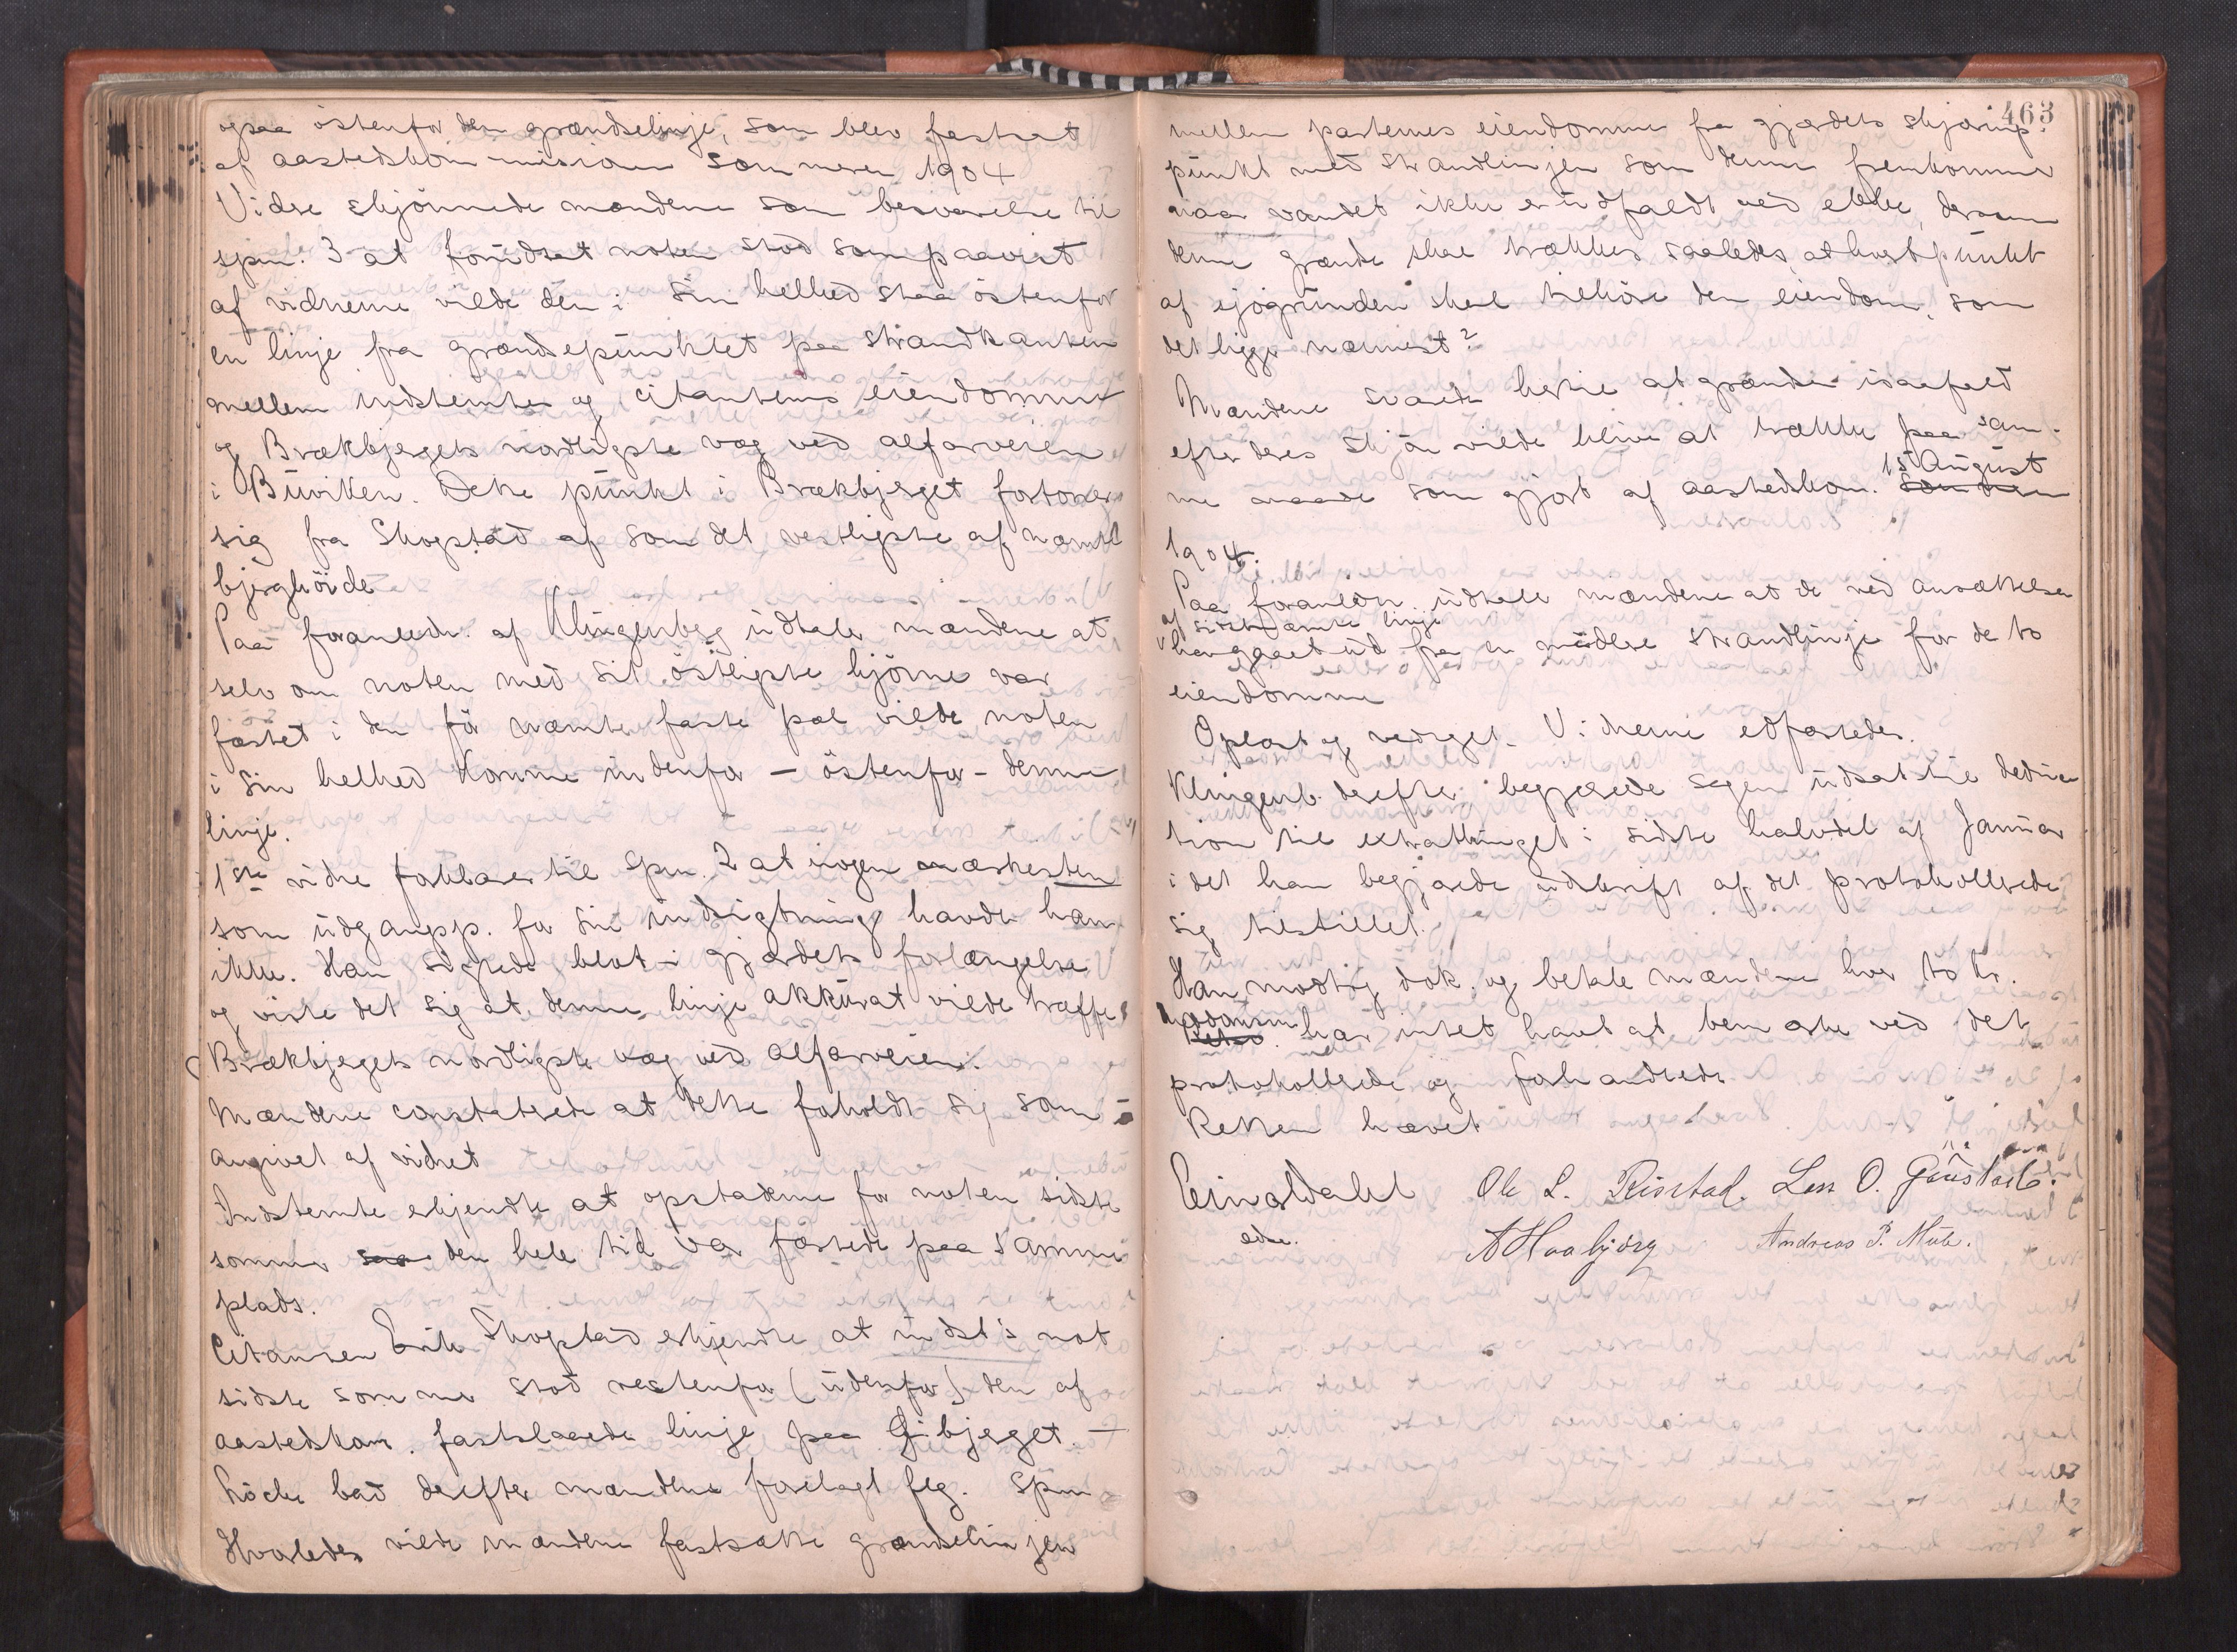 ogsaa östenfor den grændselinje, som blev fastsat
af aastedskommissionen sommeren 1904
Videre skjönnede mændene som besvarelse til
spm. 3 at forudsat noten stod som paavist
af vidnerne vilde den i sin helhed staa östenfor
en linje fra grændsepunktet paa strandkanten
mellem indstevnte og citantens eiendomme
og Brækbjergets nordligste væg ved alfarveien
i Buviken. Dette punkt i Brækbjerget fortoner
sig fra Skogstad af som det vestligste af nævnte
bjerghöide
Paa foranledn. af Klingenberg udtaler mændene at
selv om noten med sit östligste hjörne var
fæstet i den för nævnte faste pæl vilde noten
i sin helhed komme indenfor - östenfor - denne
linje.
1ste vidne forklarer til spm. 2 at nogen mærkesten
som udgangsp. for sin indsigtning havde han
ikke. Han sigtede blot i gjærdets forlængelse
og viste det sig at denne linje akkurat vilde træffe
Brækbjergets nordligste væg ved alfarveien.
Mændene constaterede at dette forholdt sig som
angivet af vidnet
Indstevnte erkjendte at opstaderne for noten sidste
sommer den hele tid var fæstede paa samme
plads.
Citanten Erik Skogstad erkjendte at indst's not
sidste sommer stod vestenfor (udenfor) den af
aastedskom. fastslaaede linje paa Gibjerget. -
Löche bad derefter mændene forelagt flg. spm
Hvorledes vilde mændene fastsætte grændselinjen
463
mellem parternes eiendomme fra gjærdets skjærings-
punkt med strandlinjen som denne fremkommer
naar vandet ikke er udfaldt ved ebbe, dersom
denne grændse skal trækkes saaledes, at hvert punkt
af sjögrunden skal tilhöre den eiendom, som
det ligger nærmest?
Mændene svarede herpaa at grændsen isaafald
efter deres skjön vilde blive at trække paa sam-
me maade som gjort af aastedskom. 15 August
1904.
Paa foranledn. udtaler mændene at de ved ansættelsen
af sidstnævnte linje
har gaaet ud fra en midlere strandlinje for de to
eiendomme
Oplæst og vedtaget. Vidnerne edfæstedes.
Klingenb. derefter begjærede sagen udsat til deduc-
tion til extrathinget i sidste halvdel af Januar
i det han begjærede udskrift af det protokollerede
sig tilstillet.
Han modtog dok. og betalte mændene hver to kr.
har intet havt at bemærke ved det
protokollerede og forhandlede
Retten hævet
Einar Dahl Ole L. Risstad. Lars O. Gaustad.
edsv. A Haabjörg Andreas P. Mule.